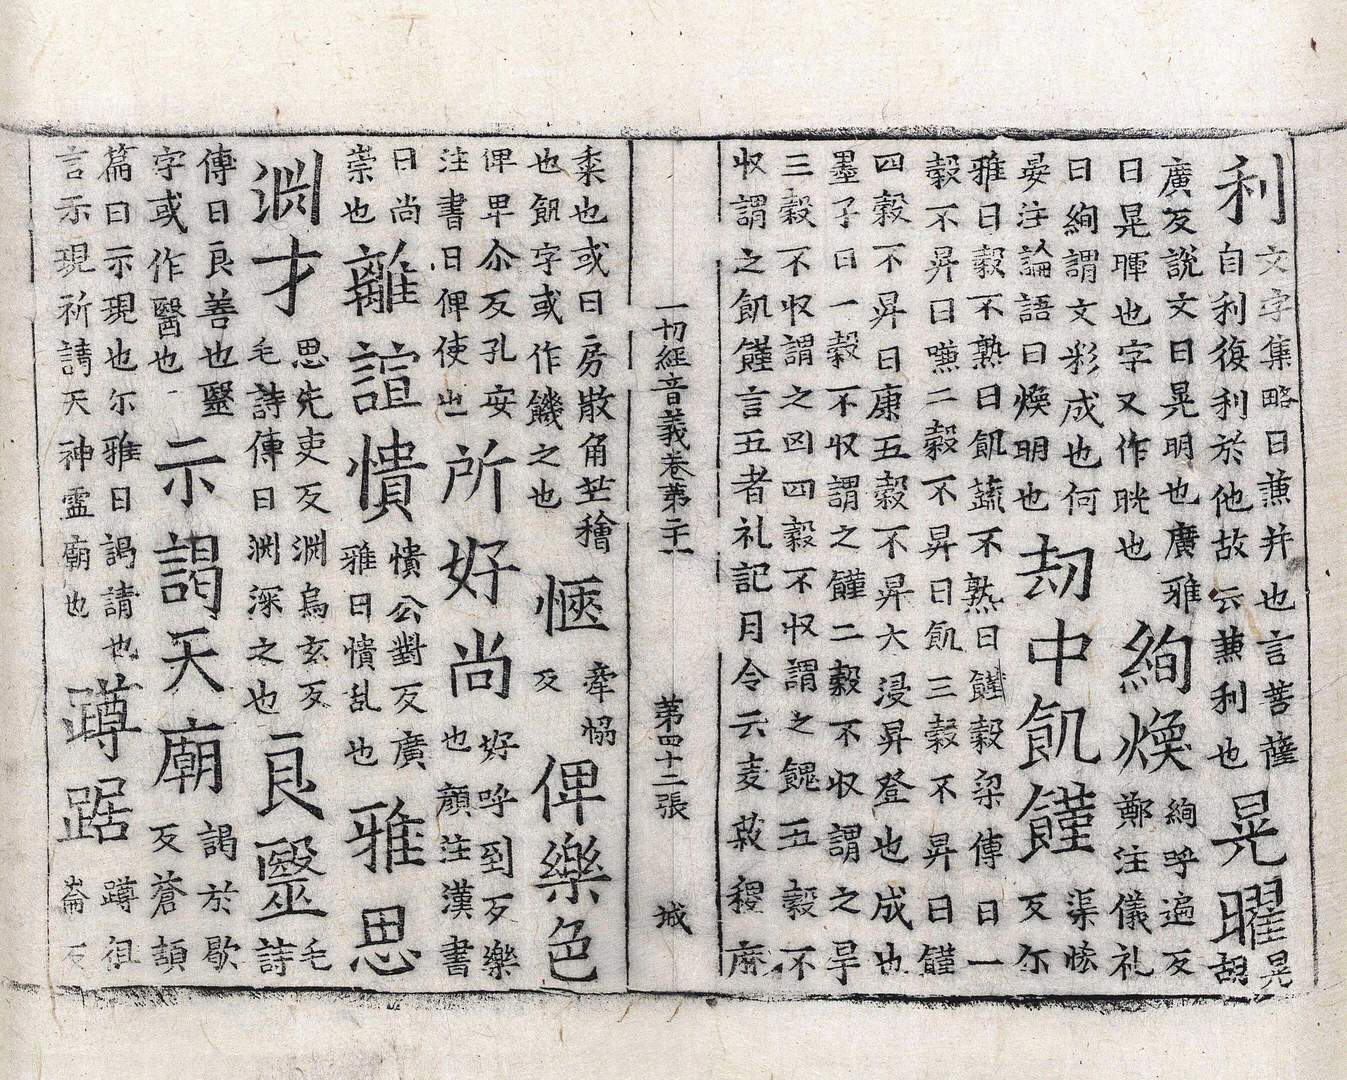 利文字集略曰蒹并也言菩薩自利復利於他故云蒹利也晃曜晃胡
廣反說文曰晃明也廣雅曰晃暉也字又作晄也絢煥絢呼遍反鄭注儀礼
曰絢謂文彩成也何晏注論語曰煥明也劫中飢饉渠恡反尔
雅曰穀不熟曰飢蔬不熟曰饉穀梁傳曰一穀不昇曰嗛二穀不昇曰飢三穀不昇曰饉
四穀不昇曰康五穀不昇大浸昇登也成也墨子曰一穀不収謂之饉二穀不収謂之旱
三穀不収謂之凶四穀不収謂之餽五穀不収謂之飢饉言五者礼記月令云麦菽稷麻
一切經音義卷第二十一 第四十二張 城
黍也或曰房散角芒也飢字或作饑之也愜牽愶反俾樂色
俾卑尒反孔安注書曰俾使也所好尚好呼到反樂也顏注漢書
曰尚崇也離諠憒憒公對反廣雅曰憒乱也雅思
渊才思先吏反渊烏玄反毛詩傳曰渊深之也良毉毛詩
傳曰良善也毉字或作醫也示謁天廟謁於歇反蒼頡
篇曰示現也尔雅曰謁請也言示現祈請天神靈廟也蹲踞蹲徂崙反